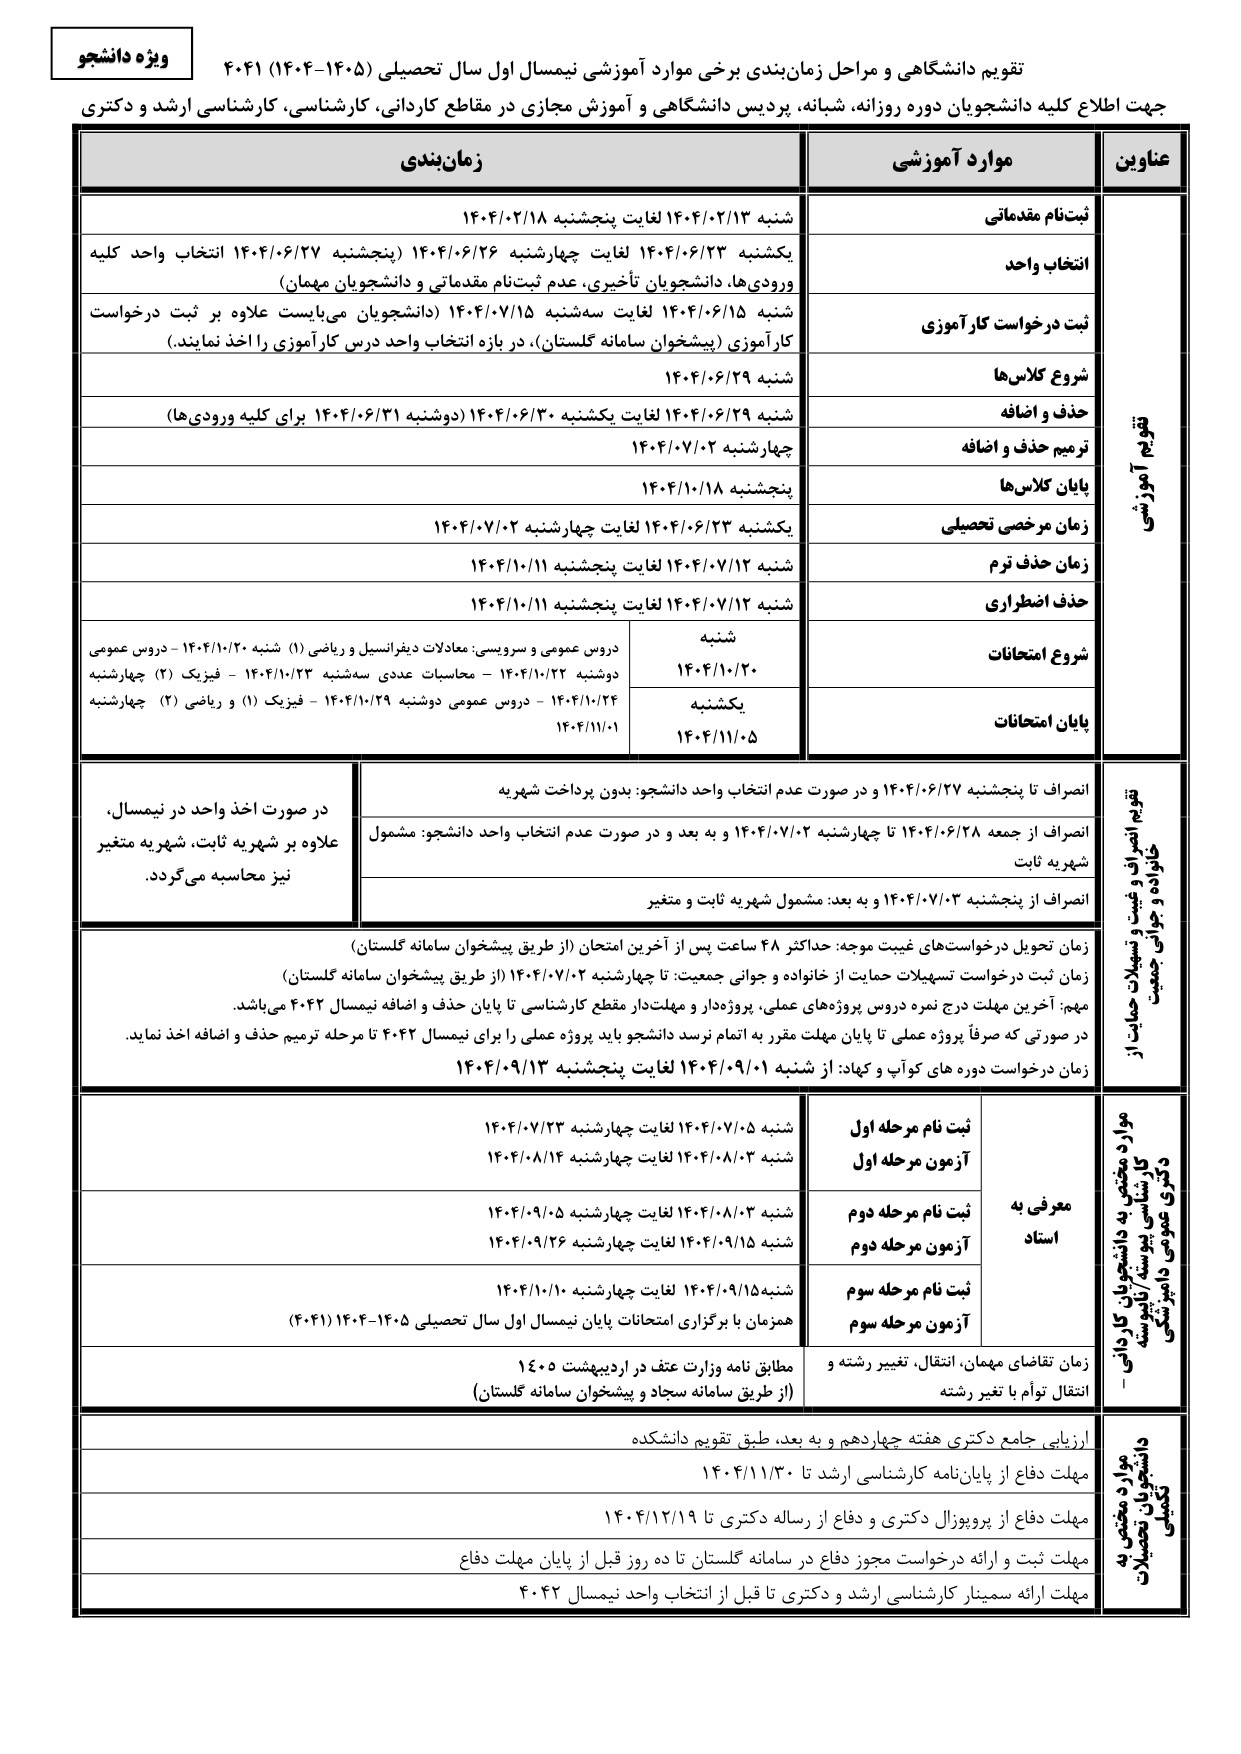 ویژه دانشجو
تقویم دانشگاهی و مراحل زمان‌بندی برخی موارد آموزشی نیمسال اول سال تحصیلی (۱۴۰۵-۱۴۰۴) ۴۰۴۱
جهت اطلاع کلیه دانشجویان دوره روزانه، شبانه، پردیس دانشگاهی و آموزش مجازی در مقاطع کاردانی، کارشناسی، کارشناسی ارشد و دکتری
عناوین
موارد آموزشی
زمان‌بندی
تقویم آموزشی
ثبت‌نام مقدماتی
شنبه ۱۴۰۴/۰۲/۱۳ لغایت پنجشنبه ۱۴۰۴/۰۲/۱۸
انتخاب واحد
یکشنبه ۱۴۰۴/۰۶/۲۳ لغایت چهارشنبه ۱۴۰۴/۰۶/۲۶ (پنجشنبه ۱۴۰۴/۰۶/۲۷ انتخاب واحد کلیه
ورودی‌ها، دانشجویان تأخیری، عدم ثبت‌نام مقدماتی و دانشجویان مهمان)
ثبت درخواست کارآموزی
شنبه ۱۴۰۴/۰۶/۱۵ لغایت سه‌شنبه ۱۴۰۴/۰۷/۱۵ (دانشجویان می‌بایست علاوه بر ثبت درخواست
کارآموزی (پیشخوان سامانه گلستان)، در بازه انتخاب واحد درس کارآموزی را اخذ نمایند.)
شروع کلاس‌ها
شنبه ۱۴۰۴/۰۶/۲۹
حذف و اضافه
شنبه ۱۴۰۴/۰۶/۲۹ لغایت یکشنبه ۱۴۰۴/۰۶/۳۰ (دوشنبه ۱۴۰۴/۰۶/۳۱ برای کلیه ورودی‌ها)
ترمیم حذف و اضافه
چهارشنبه ۱۴۰۴/۰۷/۰۲
پایان کلاس‌ها
پنجشنبه ۱۴۰۴/۱۰/۱۸
زمان مرخصی تحصیلی
یکشنبه ۱۴۰۴/۰۶/۲۳ لغایت چهارشنبه ۱۴۰۴/۰۷/۰۲
زمان حذف ترم
شنبه ۱۴۰۴/۰۷/۱۲ لغایت پنجشنبه ۱۴۰۴/۱۰/۱۱
حذف اضطراری
شنبه ۱۴۰۴/۰۷/۱۲ لغایت پنجشنبه ۱۴۰۴/۱۰/۱۱
شروع امتحانات
شنبه
۱۴۰۴/۱۰/۲۰
پایان امتحانات
یکشنبه
۱۴۰۴/۱۱/۰۵
دروس عمومی و سرویسی: معادلات دیفرانسیل و ریاضی (۱) شنبه ۱۴۰۴/۱۰/۲۰ - دروس عمومی
دوشنبه ۱۴۰۴/۱۰/۲۲ – محاسبات عددی سه‌شنبه ۱۴۰۴/۱۰/۲۳ - فیزیک (۲) چهارشنبه
۱۴۰۴/۱۰/۲۴ - دروس عمومی دوشنبه ۱۴۰۴/۱۰/۲۹ - فیزیک (۱) و ریاضی (۲) چهارشنبه
۱۴۰۴/۱۱/۰۱
تقویم انصراف و غیبت و تسهیلات حمایت از
خانواده و جوانی جمعیت
انصراف تا پنجشنبه ۱۴۰۴/۰۶/۲۷ و در صورت عدم انتخاب واحد دانشجو: بدون پرداخت شهریه
انصراف از جمعه ۱۴۰۴/۰۶/۲۸ تا چهارشنبه ۱۴۰۴/۰۷/۰۲ و به بعد و در صورت عدم انتخاب واحد دانشجو: مشمول
شهریه ثابت
انصراف از پنجشنبه ۱۴۰۴/۰۷/۰۳ و به بعد: مشمول شهریه ثابت و متغیر
در صورت اخذ واحد در نیمسال،
علاوه بر شهریه ثابت، شهریه متغیر
نیز محاسبه می‌گردد.
زمان تحویل درخواست‌های غیبت موجه: حداکثر ۴۸ ساعت پس از آخرین امتحان (از طریق پیشخوان سامانه گلستان)
زمان ثبت درخواست تسهیلات حمایت از خانواده و جوانی جمعیت: تا چهارشنبه ۱۴۰۴/۰۷/۰۲ (از طریق پیشخوان سامانه گلستان)
مهم: آخرین مهلت درج نمره دروس پروژه‌های عملی، پروژه‌دار و مهلت‌دار مقطع کارشناسی تا پایان حذف و اضافه نیمسال ۴۰۴۲ می‌باشد.
در صورتی که صرفاً پروژه عملی تا پایان مهلت مقرر به اتمام نرسد دانشجو باید پروژه عملی را برای نیمسال ۴۰۴۲ تا مرحله ترمیم حذف و اضافه اخذ نماید.
زمان درخواست دوره های کوآپ و کهاد: از شنبه ۱۴۰۴/۰۹/۰۱ لغایت پنجشنبه ۱۴۰۴/۰۹/۱۳
موارد مختص به دانشجویان کاردانی –
کارشناسی پیوسته/ناپیوسته
دکتری عمومی دامپزشکی
معرفی به
استاد
ثبت نام مرحله اول
آزمون مرحله اول
شنبه ۱۴۰۴/۰۷/۰۵ لغایت چهارشنبه ۱۴۰۴/۰۷/۲۳
شنبه ۱۴۰۴/۰۸/۰۳ لغایت چهارشنبه ۱۴۰۴/۰۸/۱۴
ثبت نام مرحله دوم
آزمون مرحله دوم
شنبه ۱۴۰۴/۰۸/۰۳ لغایت چهارشنبه ۱۴۰۴/۰۹/۰۵
شنبه ۱۴۰۴/۰۹/۱۵ لغایت چهارشنبه ۱۴۰۴/۰۹/۲۶
ثبت نام مرحله سوم
آزمون مرحله سوم
شنبه۱۴۰۴/۰۹/۱۵ لغایت چهارشنبه ۱۴۰۴/۱۰/۱۰
همزمان با برگزاری امتحانات پایان نیمسال اول سال تحصیلی ۱۴۰۵-۱۴۰۴ (۴۰۴۱)
زمان تقاضای مهمان، انتقال، تغییر رشته و
انتقال توأم با تغیر رشته
مطابق نامه وزارت عتف در اردیبهشت ۱٤۰٥
(از طریق سامانه سجاد و پیشخوان سامانه گلستان)
موارد مختص به
دانشجویان تحصیلات
تکمیلی
ارزیابی جامع دکتری هفته چهاردهم و به بعد، طبق تقویم دانشکده
مهلت دفاع از پایان‌نامه کارشناسی ارشد تا ۱۴۰۴/۱۱/۳۰
مهلت دفاع از پروپوزال دکتری و دفاع از رساله دکتری تا ۱۴۰۴/۱۲/۱۹
مهلت ثبت و ارائه درخواست مجوز دفاع در سامانه گلستان تا ده روز قبل از پایان مهلت دفاع
مهلت ارائه سمینار کارشناسی ارشد و دکتری تا قبل از انتخاب واحد نیمسال ۴۰۴۲